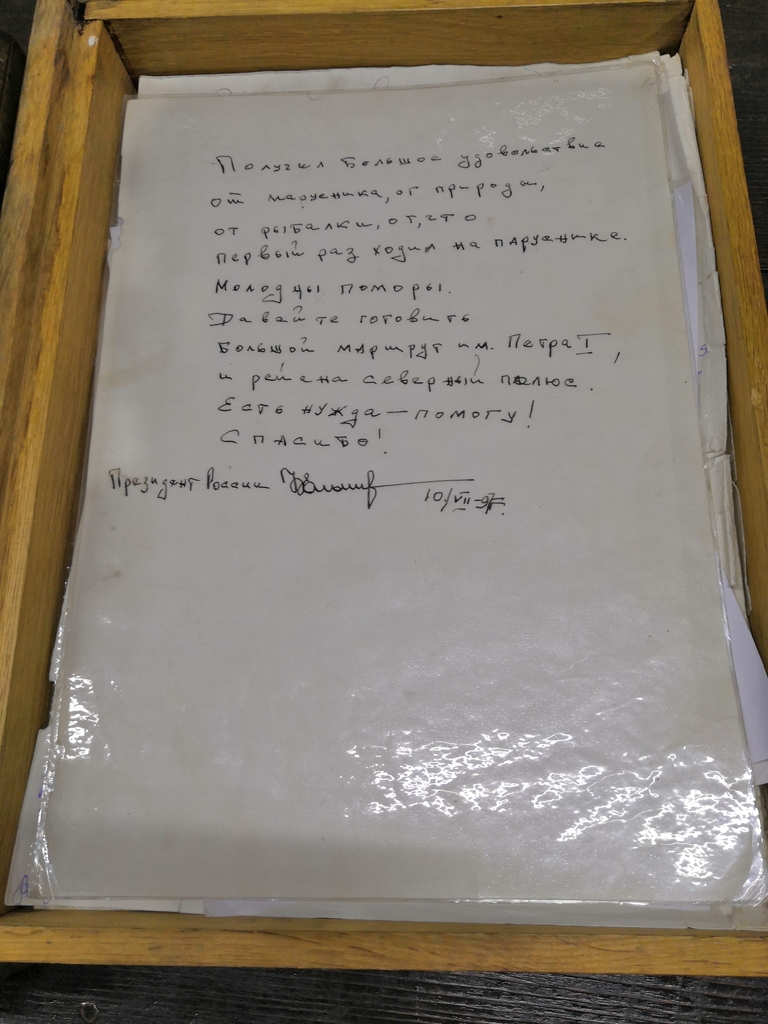 Получил большое удовольствие
от парусника, от природы,
от рыбалки, от, что
первый раз ходил на паруснике.
Молодцы поморы.
Давайте готовить
большой маршрут им. Петра I,
и рейс на северный полюс.
Есть нужда — помогу!
Спасибо!
Президент России
10/VII-97г.